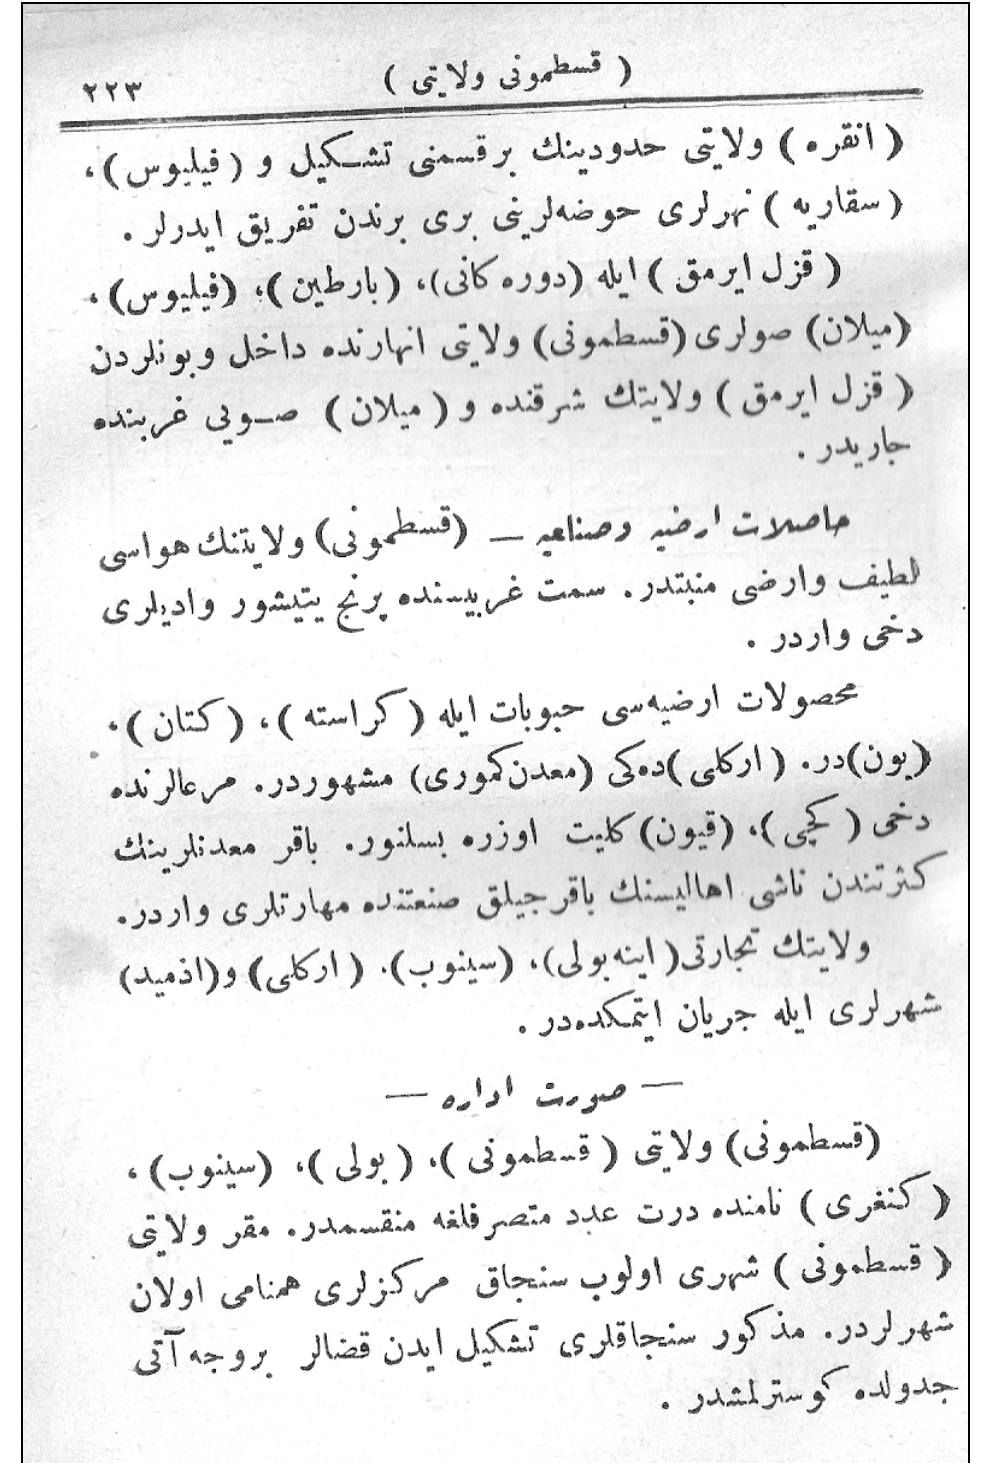 ( قسطمونی ولایتی )
۲۲۳
( انقره ) ولایتی حدودینك برقسمنی تشكیل و ( فیلیوس )،
( سقاریه ) نهرلری حوضه‌لرینی بری برندن تفریق ایدرلر .
( قزل ایرمق ) ایله (دوره‌كانی)، (بارطین)، (فیلیوس)،
(میلان) صولری (قسطمونی) ولایتی انهارنده داخل وبونلردن
( قزل ایرمق ) ولایتك شرقنده و ( میلان ) صویی غربنده
جاریدر .
حاصلات ارضیه وصناعیه — (قسطمونی) ولایتنك هواسی
لطیف وارضی منبتدر. سمت غربیسنده پرنج یتیشور وادیلری
دخی واردر .
محصولات ارضیه‌سی حبوبات ایله ( كراسته )، (كتان)،
(یون)در. (اركلی)ده‌كی (معدن كموری) مشهوردر. مرعالرنده
دخی ( كچی )، (قیون) كلیت اوزره بسلنور. باقر معدنلرینك
كثرتندن ناشی اهالیسنك باقرجیلق صنعتنده مهارتلری واردر.
ولایتك تجارتی (اینه‌بولی)، (سینوب)، (اركلی) و(اذمید)
شهرلری ایله جریان ایتمكده‌در .
— صورت اداره —
(قسطمونی) ولایتی ( قسطمونی )، (بولی)، (سینوب)،
( كنغری ) نامنده درت عدد متصرفلغه منقسمدر. مقر ولایتی
( قسطمونی ) شهری اولوب سنجاق مركزلری همنامی اولان
شهرلردر. مذكور سنجاقلری تشكیل ایدن قضالر بروجه آتی
جدولده كوسترلمشدر .